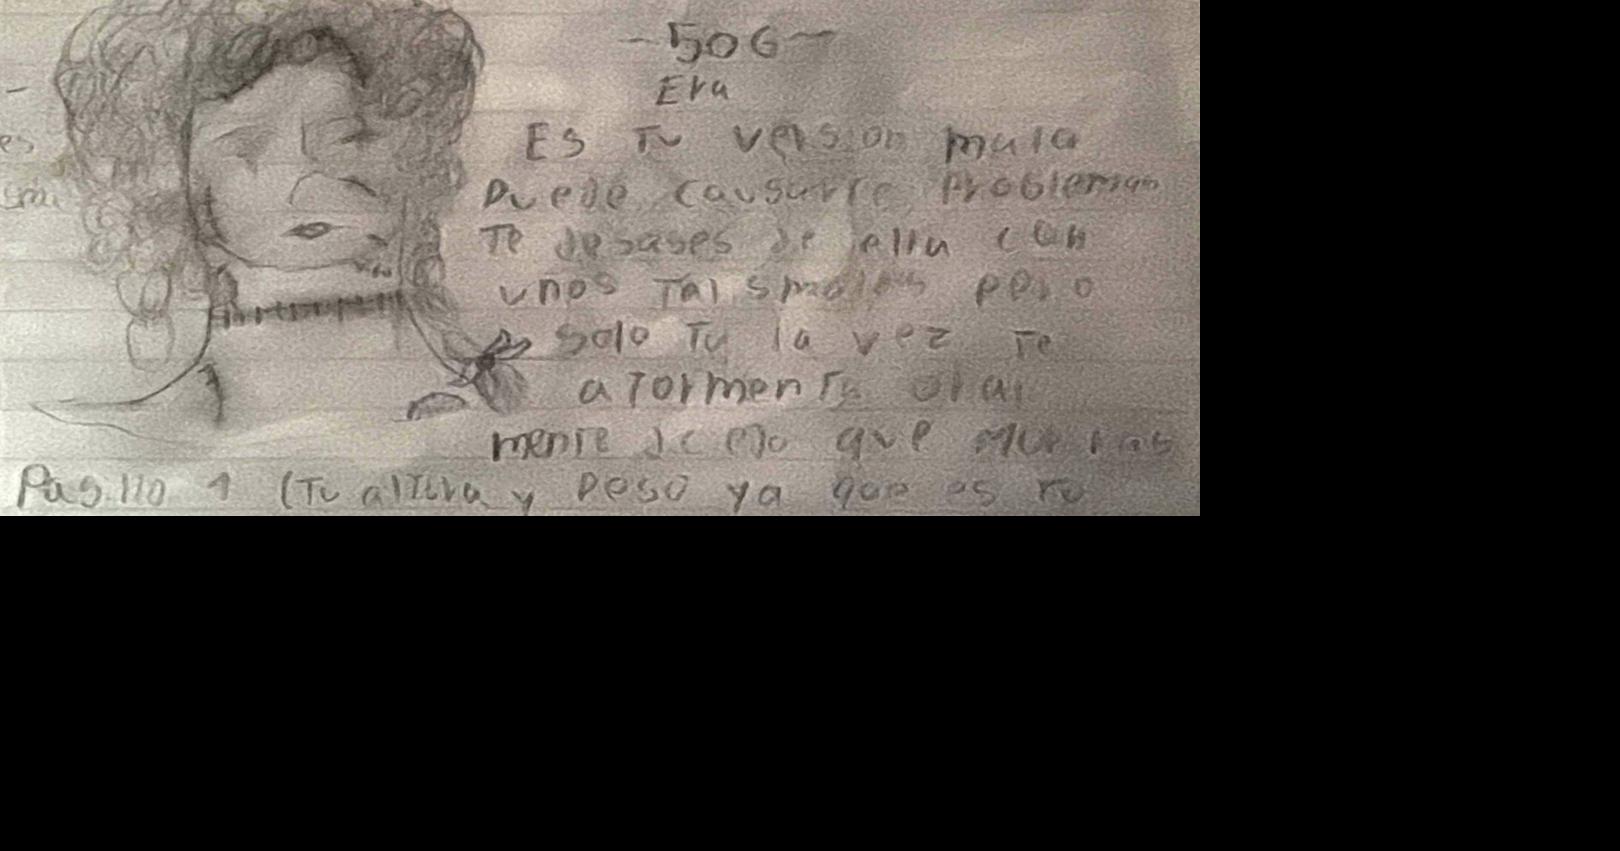 -506-
Era
es
Es Tu version mala
Puede causarte Problemas
Te desases de ella con
unos Talismanes pero
solo Tu la vez Te
atormenta
mente que
Pasillo 1 (Tu altura y peso ya que es tu